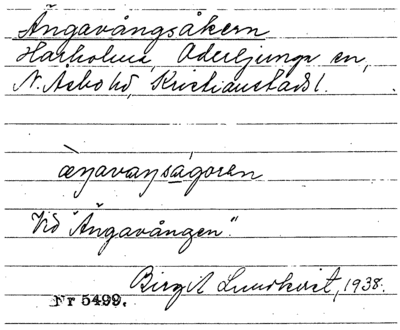 Ängavångsåkern
Harholma, Oderljunga sn,
N. Åsbo hd, Kristianstads l.
Vid "Ängavången".
Birgit Lundkvist, 1938.
Nr 5499.